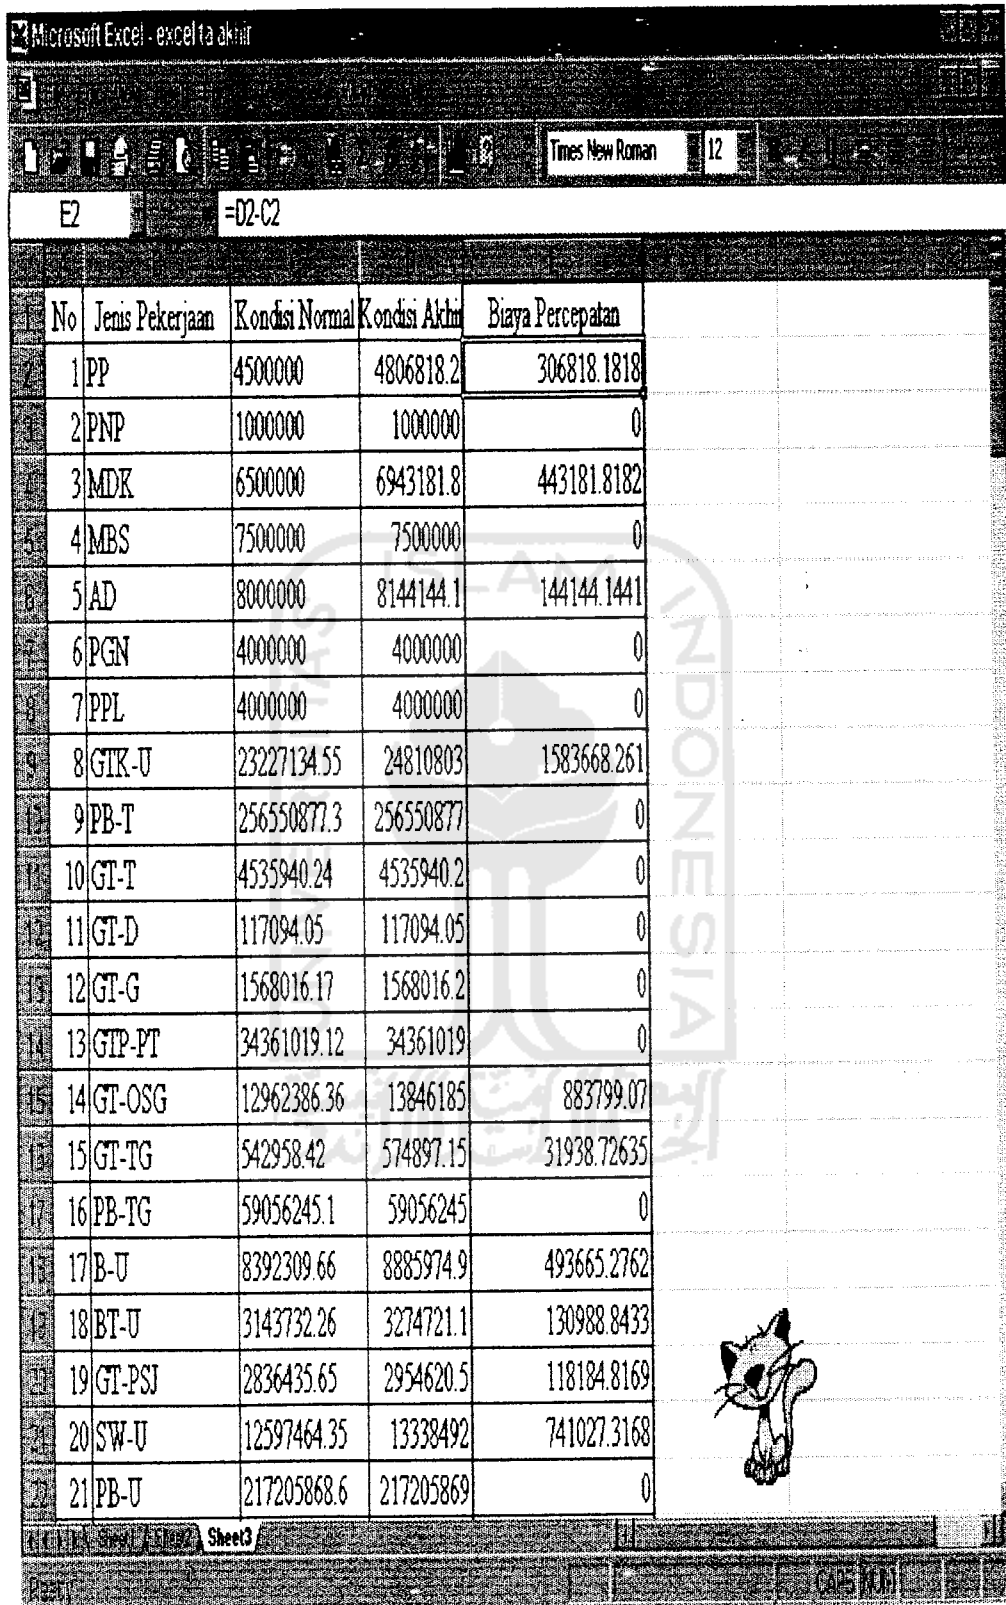 Microsoft Excel - excel ta akhir
Times New Roman 12
E2 =D2-C2
No Jenis Pekerjaan Kondisi Normal Kondisi Akhir Biaya Percepatan
2 1 PP 4500000 4806818.2 306818.1818
2 PNP 1000000 1000000 0
4 3 MDK 6500000 6943181.8 443181.8182
5 4 MBS 7500000 7500000 0
6 5 AD 8000000 8144144.1 144144.1441
7 6 PGN 4000000 4000000 0
8 7 PPL 4000000 4000000 0
9 8 GTK-U 23227134.55 24810803 1583668.261
10 9 PB-T 256550877.3 256550877 0
11 10 GT-T 4535940.24 4535940.2 0
12 11 GT-D 117094.05 117094.05 0
13 12 GT-G 1568016.17 1568016.2 0
14 13 GTP-PT 34361019.12 34361019 0
15 14 GT-OSG 12962386.36 13846185 883799.07
16 15 GT-TG 542958.42 574897.15 31938.72635
17 16 PB-TG 59056245.1 59056245 0
18 17 B-U 8392309.66 8885974.9 493665.2762
19 18 BT-U 3143732.26 3274721.1 130988.8433
20 19 GT-PSJ 2836435.65 2954620.5 118184.8169
21 20 SW-U 12597464.35 13338492 741027.3168
22 21 PB-U 217205868.6 217205869 0
Sheet1 Sheet2 Sheet3
CAPS NUM
UNIVERSITAS ISLAM INDONESIA